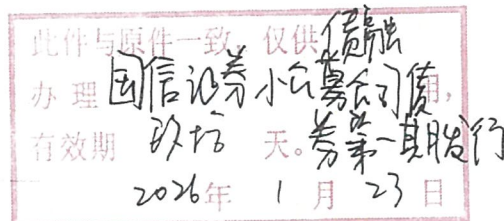 此件与原件一致，仅供债融
办理国信证券小公募公司债用，
有效期 玖拾 天。券第一期发行
2026年 1 月 23 日